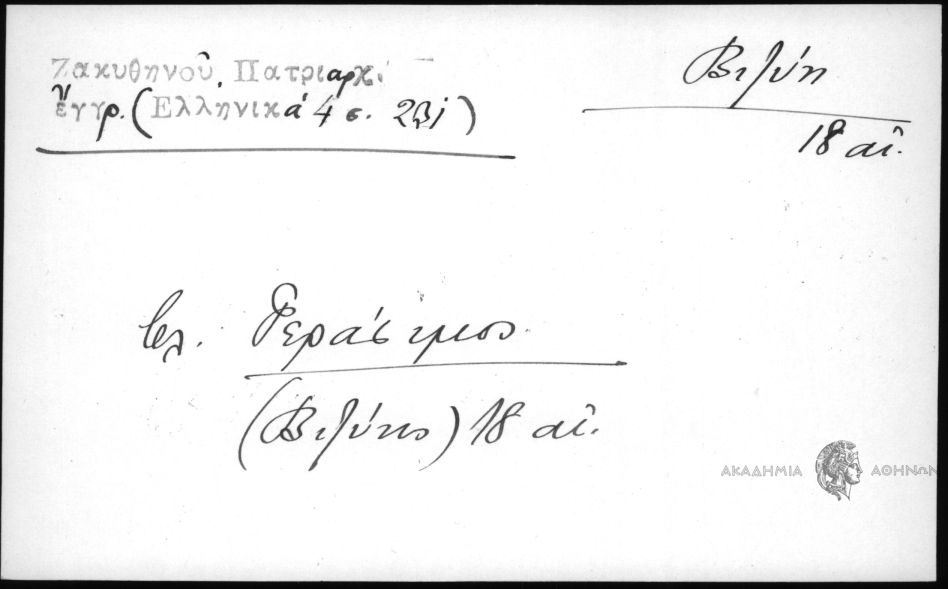 Ζακυθηνοῦ, Πατριαρχ.
ἔγγρ. (Ἑλληνικά 4 σ.
Βιζύη
18 αἰ.
βλ. Γεράσιμος
(Βιζύης) 18 αἰ.
ΑΚΑΔΗΜΙΑ ΑΘΗΝΩΝ